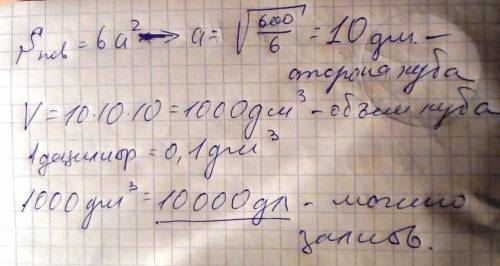 Sпов = 6a² → a = √(600/6) = 10 дм. –
сторона куба
V = 10·10·10 = 1000 дм³ – объём куба
1 децилитр = 0,1 дм³
1000 дм³ = 10000 дл – можно
залить.